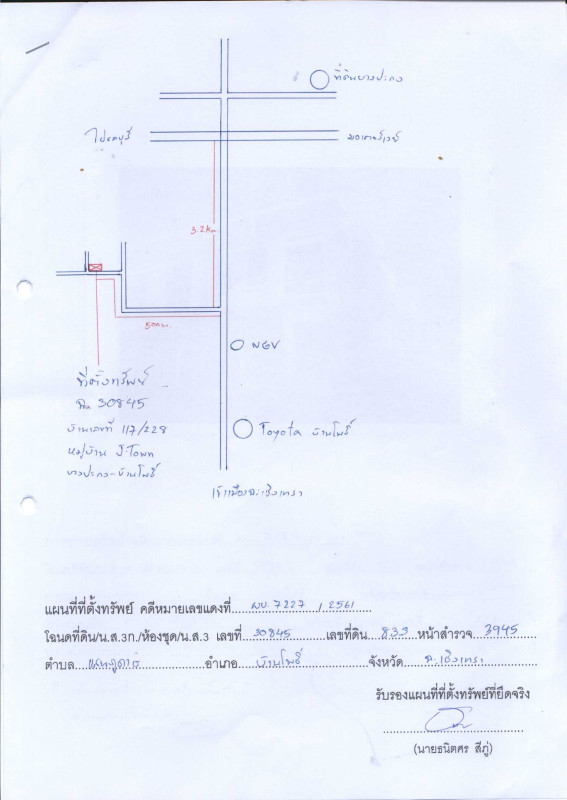 ที่ดินบางปะกง
ไปชลบุรี
มอเตอร์เวย์
3.2 km
500 ม.
NGV
ที่ตั้งทรัพย์
30845
บ้านเลขที่ 117/228
หมู่บ้าน J-Town
บางปะกง-บ้านโพธิ์
Toyota บ้านโพธิ์
เข้าเมืองฉะเชิงเทรา
แผนที่ที่ตั้งทรัพย์ คดีหมายเลขแดงที่ ผบ. 7227 / 2561
โฉนดที่ดิน/น.ส.3ก./ห้องชุด/น.ส.3 เลขที่ 30845 เลขที่ดิน 833 หน้าสำรวจ 3945
ตำบล อำเภอ บ้านโพธิ์ จังหวัด ฉะเชิงเทรา
รับรองแผนที่ที่ตั้งทรัพย์ที่ยึดจริง
(นายธนิตศร สีภู่)